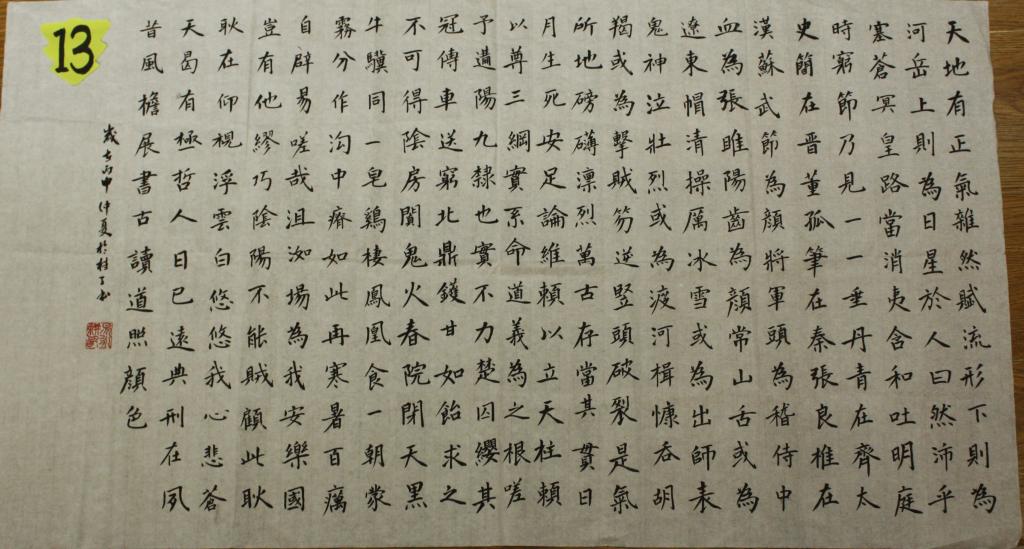 13
天地有正氣雜然賦流形下則為
河岳上則為日星於人曰然沛乎
塞蒼冥皇路當消夷含和吐明庭
時窮節乃見一一垂丹青在齊太
史簡在晋董孤筆在秦張良椎在
漢蘇武節為顏將軍頭為稽侍中
血為張睢陽齒為顏常山舌或為
遼東帽清操厲冰雪或為出師表
鬼神泣壯烈或為渡河楫慷吞胡
羯或為擊賊笏逆竪頭破裂是氣
所地磅礴凛烈萬古存當其貫日
月生死安足論維賴以立天柱賴
以尊三綱實系命道義為之根嗟
予遘陽九隸也實不力楚囚纓其
冠傳車送窮北鼎鑊甘如飴求之
不可得陰房闃鬼火春院閉天黑
牛驥同一皂鷄棲鳳凰食一朝蒙
霧分作沟中瘠如此再寒暑百癘
自辟易嗟哉沮洳場為我安樂國
豈有他繆巧陰陽不能賊顧此耿
耿在仰視浮雲白悠悠我心悲蒼
天曷有極哲人日已遠典刑在夙
昔風檐展書古讀道照顏色
歲在丙申仲夏於桂